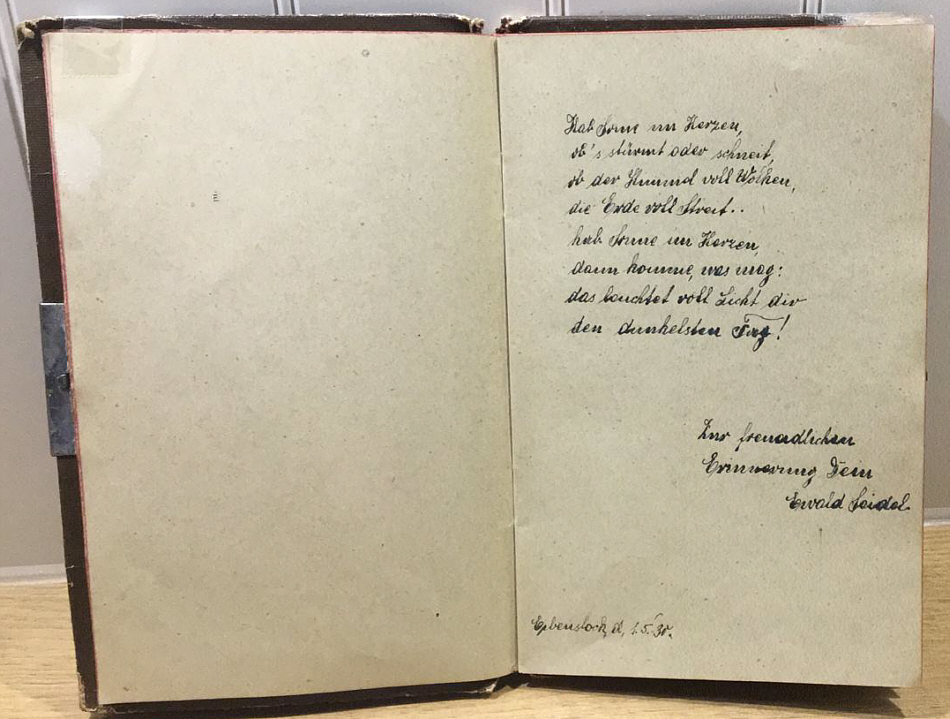 Hab Sonne im Herzen,
ob's stürmt oder schneit,
ob der Himmel voll Wolken,
die Erde voll Streit..
hab Sonne im Herzen,
dann komme, was mag:
das leuchtet voll Licht dir
den dunkelsten Tag!
Zur freundlichen
Erinnerung Dein
Ewald Seidel.
d, 1.5.